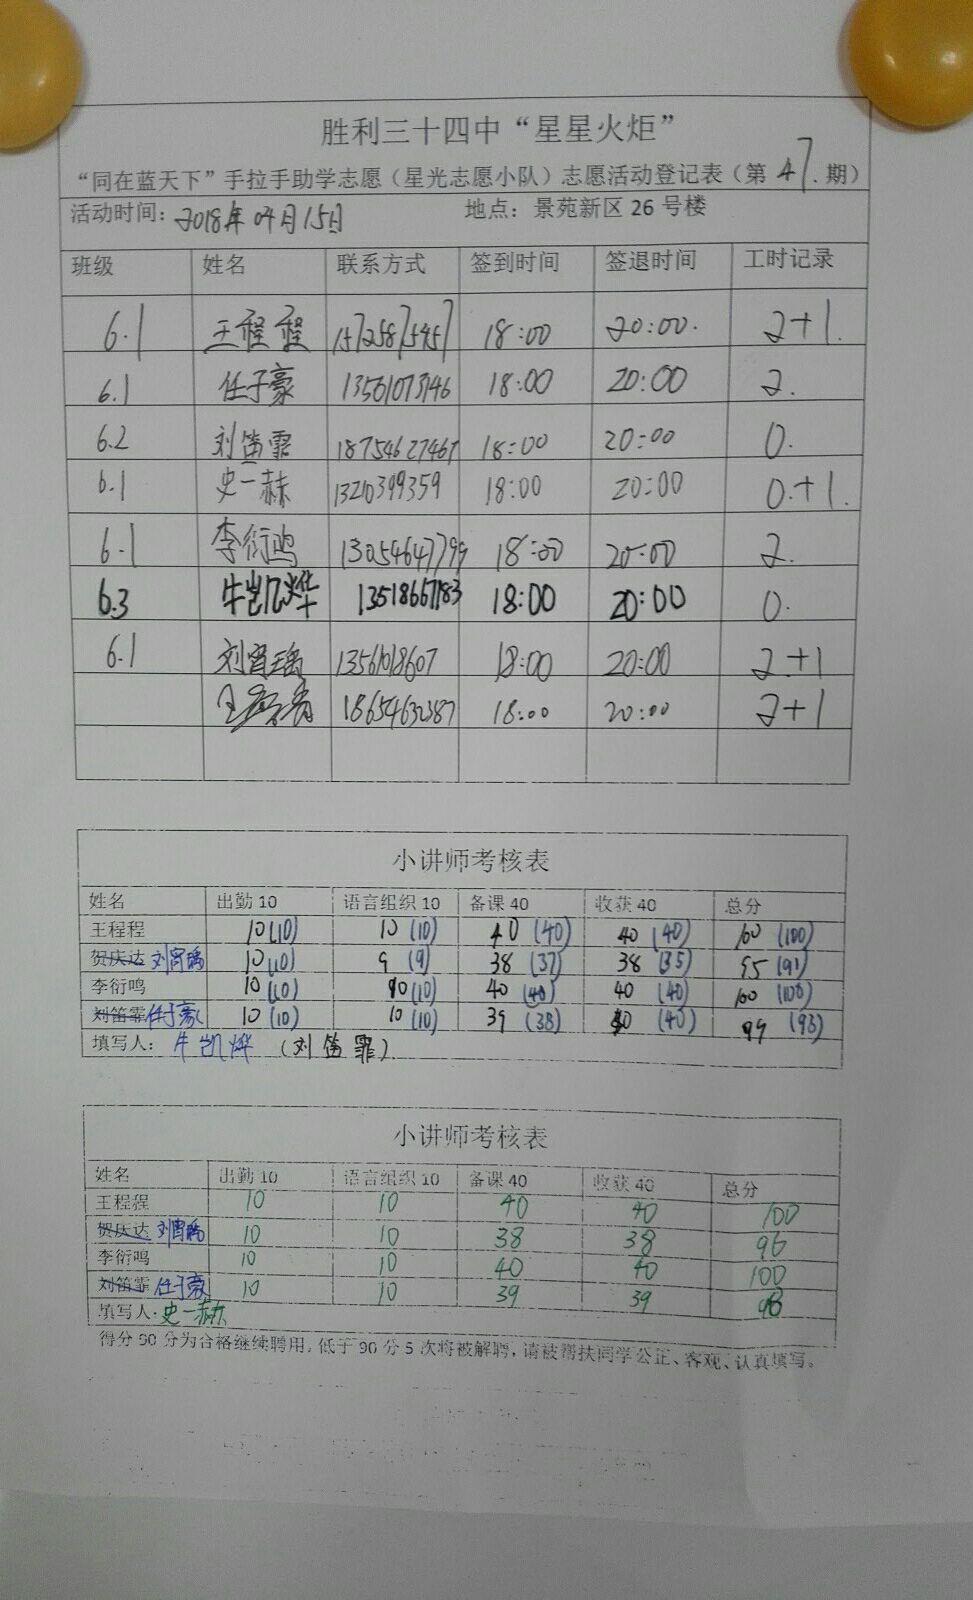 胜利三十四中“星星火炬”
“同在蓝天下”手拉手助学志愿（星光志愿小队）志愿活动登记表（第 47. 期）
活动时间：2018年04月15日 地点：景苑新区 26 号楼
班级 姓名 联系方式 签到时间 签退时间 工时记录
6.1 王程程 15725875457 18:00 20:00. 2+1.
6.1 任子豪 13561073146 18:00 20:00 2.
6.2 刘笛霏 18754627467 18:00 20:00 0.
6.1 史一赫 13210399359 18:00 20:00 0.+1.
6.1 李衍鸣 13054647799 18:00 20:00 2.
6.3 牛凯烨 13518667183 18:00 20:00 0.
6.1 刘宵瑀 13561018607 18:00 20:00 2+1
18654632387 18:00 20:00 2+1
小讲师考核表
姓名 出勤 10 语言组织 10 备课 40 收获 40 总分
王程程 10(10) 10 (10) 40 (40) 40 (40) 100 (100)
贺庆达 刘宵瑀 10(10) 9 (9) 38 (37) 38 (35) 95 (91)
李衍鸣 10(10) 10(10) 40 (40) 40 (40) 100 (100)
刘笛霏 任子豪 10(10) 10 (10) 39 (38) 40 (40) 99 (98)
填写人：牛凯烨 (刘笛霏)
小讲师考核表
姓名 出勤 10 语言组织 10 备课 40 收获 40 总分
王程程 10 10 40 40 100
贺庆达 刘宵瑀 10 10 38 38 96
李衍鸣 10 10 40 40 100
刘笛霏 任子豪 10 10 39 39 98
填写人：史一赫
得分 90 分为合格继续聘用，低于 90 分 5 次将被解聘，请被帮扶同学公正、客观、认真填写。